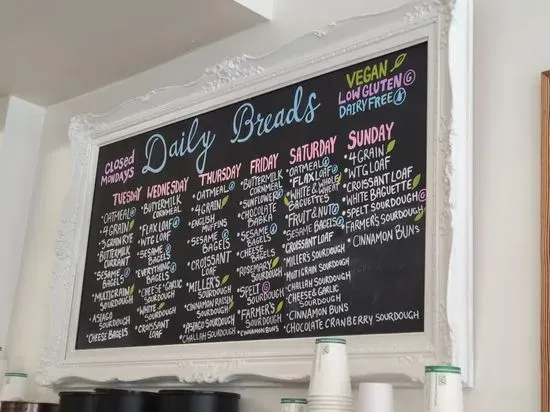 Daily Breads
CLOSED
MONDAYS
VEGAN
LOW GLUTEN G
DAIRY FREE
TUESDAY
• OATMEAL
• 4 GRAIN
• 3 GRAIN RYE
• BUTTERMILK
CURRANT
• SESAME
BAGELS
• MULTIGRAIN
SOURDOUGH
• ASIAGO
SOURDOUGH
• CHEESE BAGELS
WEDNESDAY
• BUTTERMILK
CORNMEAL
• FLAX LOAF
• WTG LOAF
• SESAME
BAGELS
• EVERYTHING
BAGELS
• CHEESE & GARLIC
SOURDOUGH
• WHITE
SOURDOUGH
• CROISSANT
LOAF
THURSDAY
• OATMEAL
• 4 GRAIN
• ENGLISH
MUFFINS
• SESAME
BAGELS
• CROISSANT
LOAF
• MILLER'S
SOURDOUGH
• CINNAMON RAISIN
SOURDOUGH
• ASIAGO SOURDOUGH
• CHALLAH SOURDOUGH
FRIDAY
• BUTTERMILK
CORNMEAL
• SUNFLOWER
• CHOCOLATE
BABKA
• SESAME
BAGELS
• CHEESE
BAGELS
• ROSEMARY
SOURDOUGH
• SPELT G
SOURDOUGH
• FARMER'S
SOURDOUGH
• CINNAMON BUNS
SATURDAY
• OATMEAL
• FLAX LOAF
• WHITE & WHOLE
WHEAT
BAGUETTES
• FRUIT & NUT
• SESAME
BAGELS
• CROISSANT LOAF
• MILLERS SOURDOUGH
• MULTIGRAIN SOURDOUGH
• CHALLAH SOURDOUGH
• CHEESE & GARLIC
SOURDOUGH
• CINNAMON BUNS
• CHOCOLATE CRANBERRY SOURDOUGH
SUNDAY
• 4 GRAIN
• WTG LOAF
• CROISSANT LOAF
• WHITE
BAGUETTE
• SPELT SOURDOUGH G
• FARMER'S SOURDOUGH
• CINNAMON BUNS